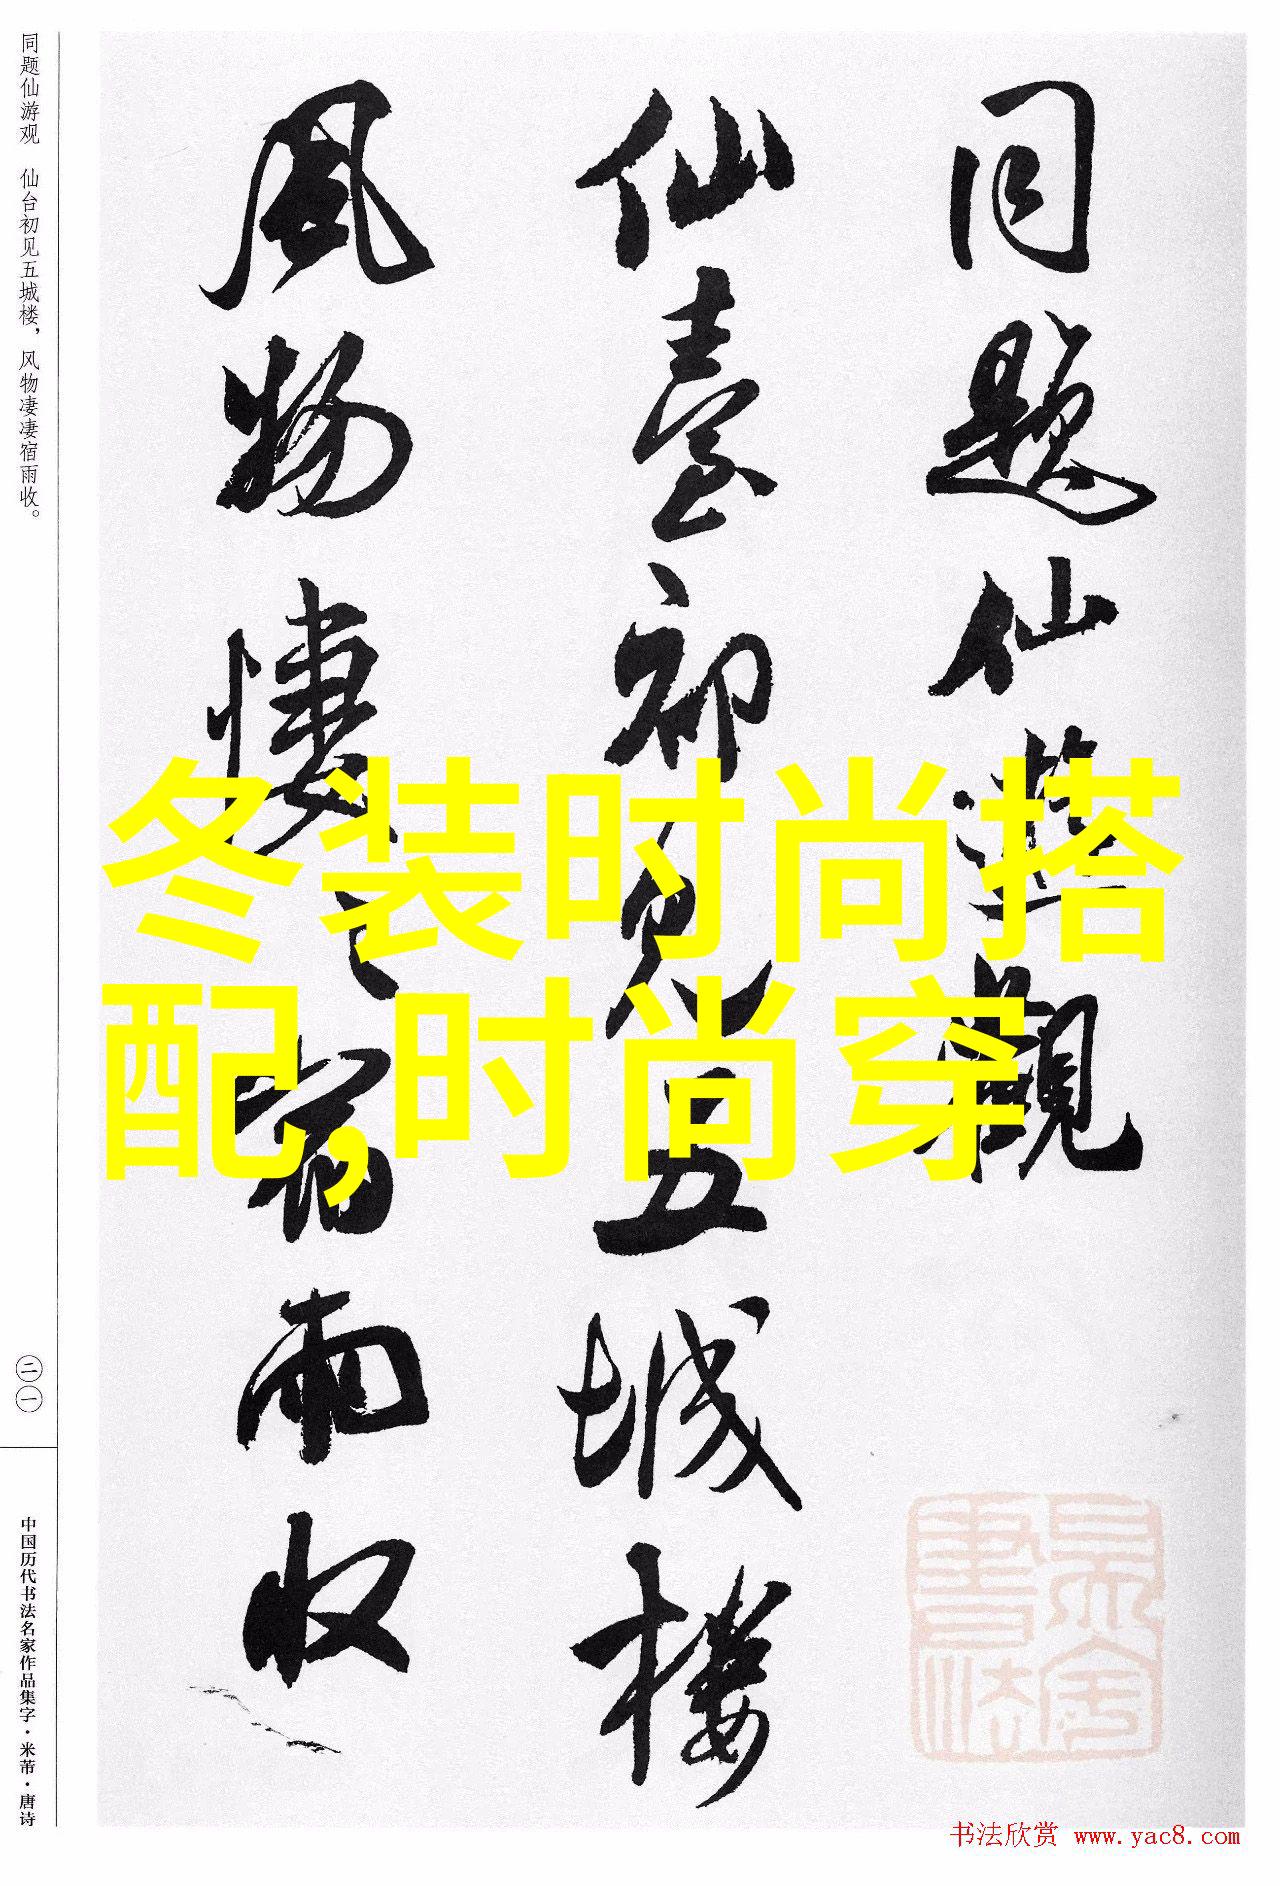 同题仙游观 仙台初见五城楼，风物凄凄宿雨收。
二一
中国历代书法名家作品集字·米芾·唐诗
同题仙遊觀
仙臺初見五城樓
風物悽〻宿雨收
冬装时尚搭
配,时尚穿
书法欣赏 www.yac8.com